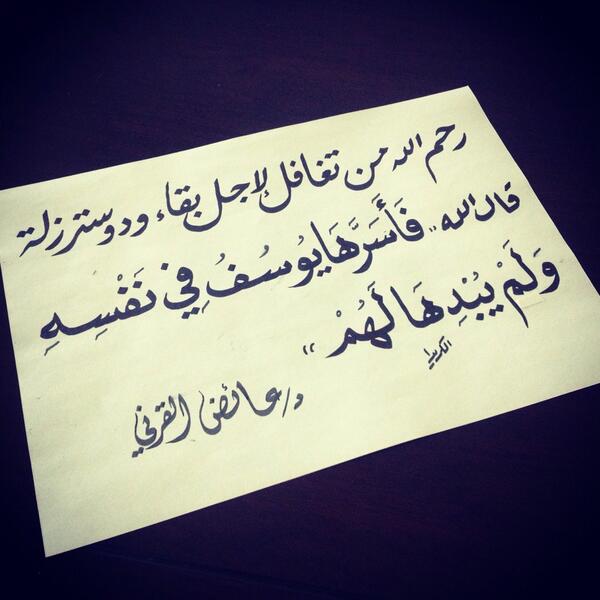 رحم الله من تغافل لإجل بقاء ودو ستر زلة
قال الله " فَأَسَرَّهَا يُوسُفُ فِي نَفْسِهِ
وَلَمْ يُبْدِهَا لَهُمْ "
د/ عائض القرني